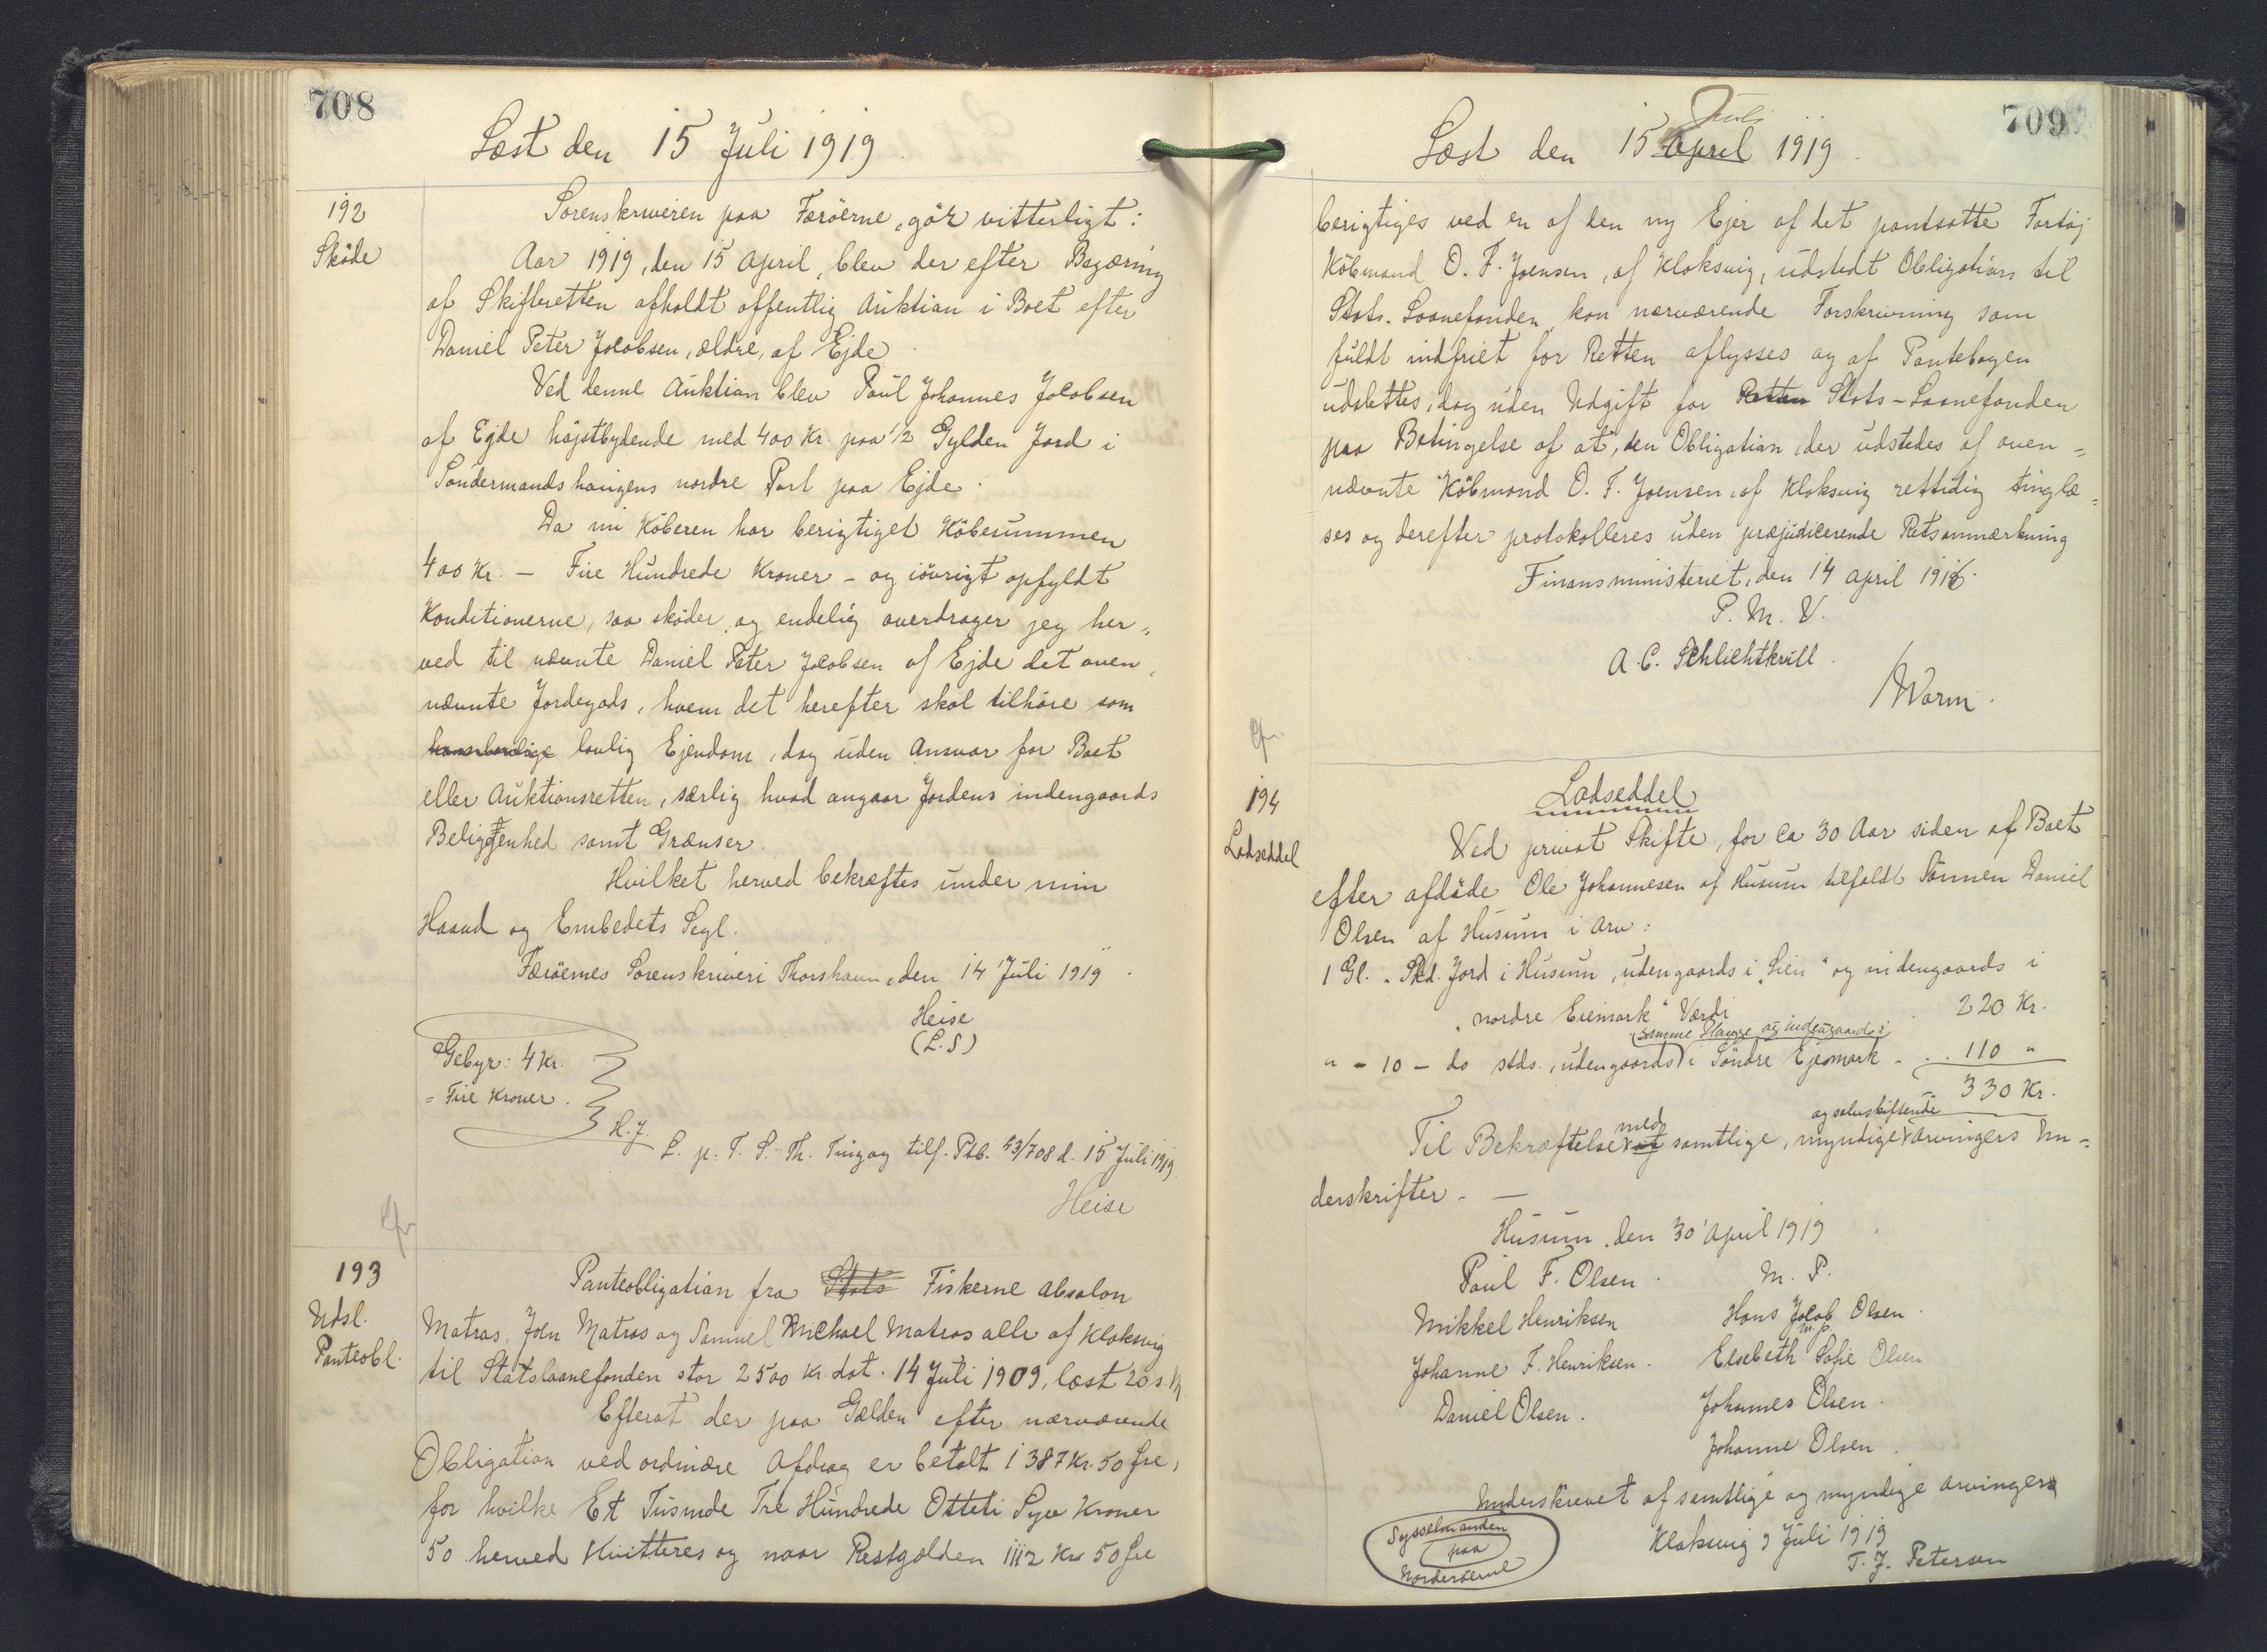 708
Læst den 15 Juli 1919.
192
Sköde
Sorenskriveren paa Færöerne, gör vitterligt:
Aar 1919, den 15 April, blev der efter Begæring
af Skifteretten afholdt offentlig Auktion i Boet efter
Daniel Peter Jacobsen, ældre, af Ejde.
Ved denne Auktion blev Poul Johannes Jacobsen
af Ejde højstbydende med 400 Kr. paa 1/2 Gylden Jord i
Söndermandshaugens nordre Part paa Ejde.
Da nu Köberen har berigtiget Köbesummen
400 Kr. - Fire Hundrede Kroner - og iövrigt opfyldt
Konditionerne, saa sköder og endelig overdrager jeg her-
ved til nævnte Daniel Peter Jacobsen af Ejde det oven-
nævnte Jordegods, hvem det herefter skal tilhöre som
lovlig Ejendom, dog uden Ansvar for Boet
eller Auktionsretten, særlig hvad angaar Jordens indengaards
Beliggenhed samt Grænser.
Hvilket herved bekræftes under min
Haand og Embedets Segl.
Færöernes Sorenskriveri Thorshavn, den 14 Juli 1919.
Heise
(L.S)
Gebyr: 4 Kr.
= Fire Kroner.
H.J.
L. p. F. S. Th. Ting og tilf. Ptb. 43/708 d. 15 Juli 1919.
Heise
Cfr
193
Udsl.
Panteobl.
Panteobligation fra Stats Fiskerne Absalon
Matras, Joen Matras og Samuel Michael Matras alle af Klaksvig
til Statslaanefonden stor 2500 Kr. dat. 14 Juli 1909, læst 20 s. M
Efterat der paa Gælden efter nærværende
Obligation ved ordinære Afdrag er betalt 1387 Kr. 50 Øre,
for hvilke Et Tusinde Tre Hundrede Otteti Syv Kroner
50 herved kvitteres og naar Restgælden 1112 Kr 50 Øre
709
Juli
Læst den 15 April 1919.
berigtiges ved en af den ny Ejer af det pantsatte Fartöj
Köbmand O. F. Joensen, af Klaksvig, udstedt Obligation til
Stats-Laanefonden, kan nærværende Forskrivning som
fuldt indfriet for Retten aflysses og af Pantebogen
udslettes, dog uden Udgift for Retten Stats-Laanefonden
paa Betingelse af at, den Obligation, der udstedes af oven-
nævnte Köbmand O. F. Joensen, af Klaksvig rettidig tinglæ-
ses og derefter protokolleres uden præjudicerende Retsanmærkning
Finansministeriet, den 14 April 1916.
P. M. V.
A. C. Schlichtkrull.
/Warm.
Cfr.
194
Lodseddel
Lodseddel
Ved privat Skifte, for ca 30 Aar siden af Boet
efter afdöde Ole Johannesen af Husum tilfaldt Sönnen Daniel
Olsen af Husum i Arv:
1 Gl. - Skd. Jord i Husum, udengaards i "Lien" og indengaards i
"nordre Eiemark" Værdi 220 Kr.
(samme Hauge og indengaards i
" - 10 - do stds., udengaards) i Söndre Ejemark - .. 110 "
= 330 Kr.
med og selvskiftende
Til Bekræftelse af samtlige, myndige Arvingers Un-
derskrifter. -
Husum, den 30 April 1919.
Poul F. Olsen. M. P.
Mikkel Henriksen Hans Jacob Olsen.
m.p.
Johanne F. Henriksen. Elsebeth Sofie Olsen
Daniel Olsen. Johannes Olsen.
Johanne Olsen.
Underskrevet af samtlige og myndige Arvinger
Klaksvig 9 Juli 1919
T. J. Petersen
Sysselmanden
paa
Norderöerne